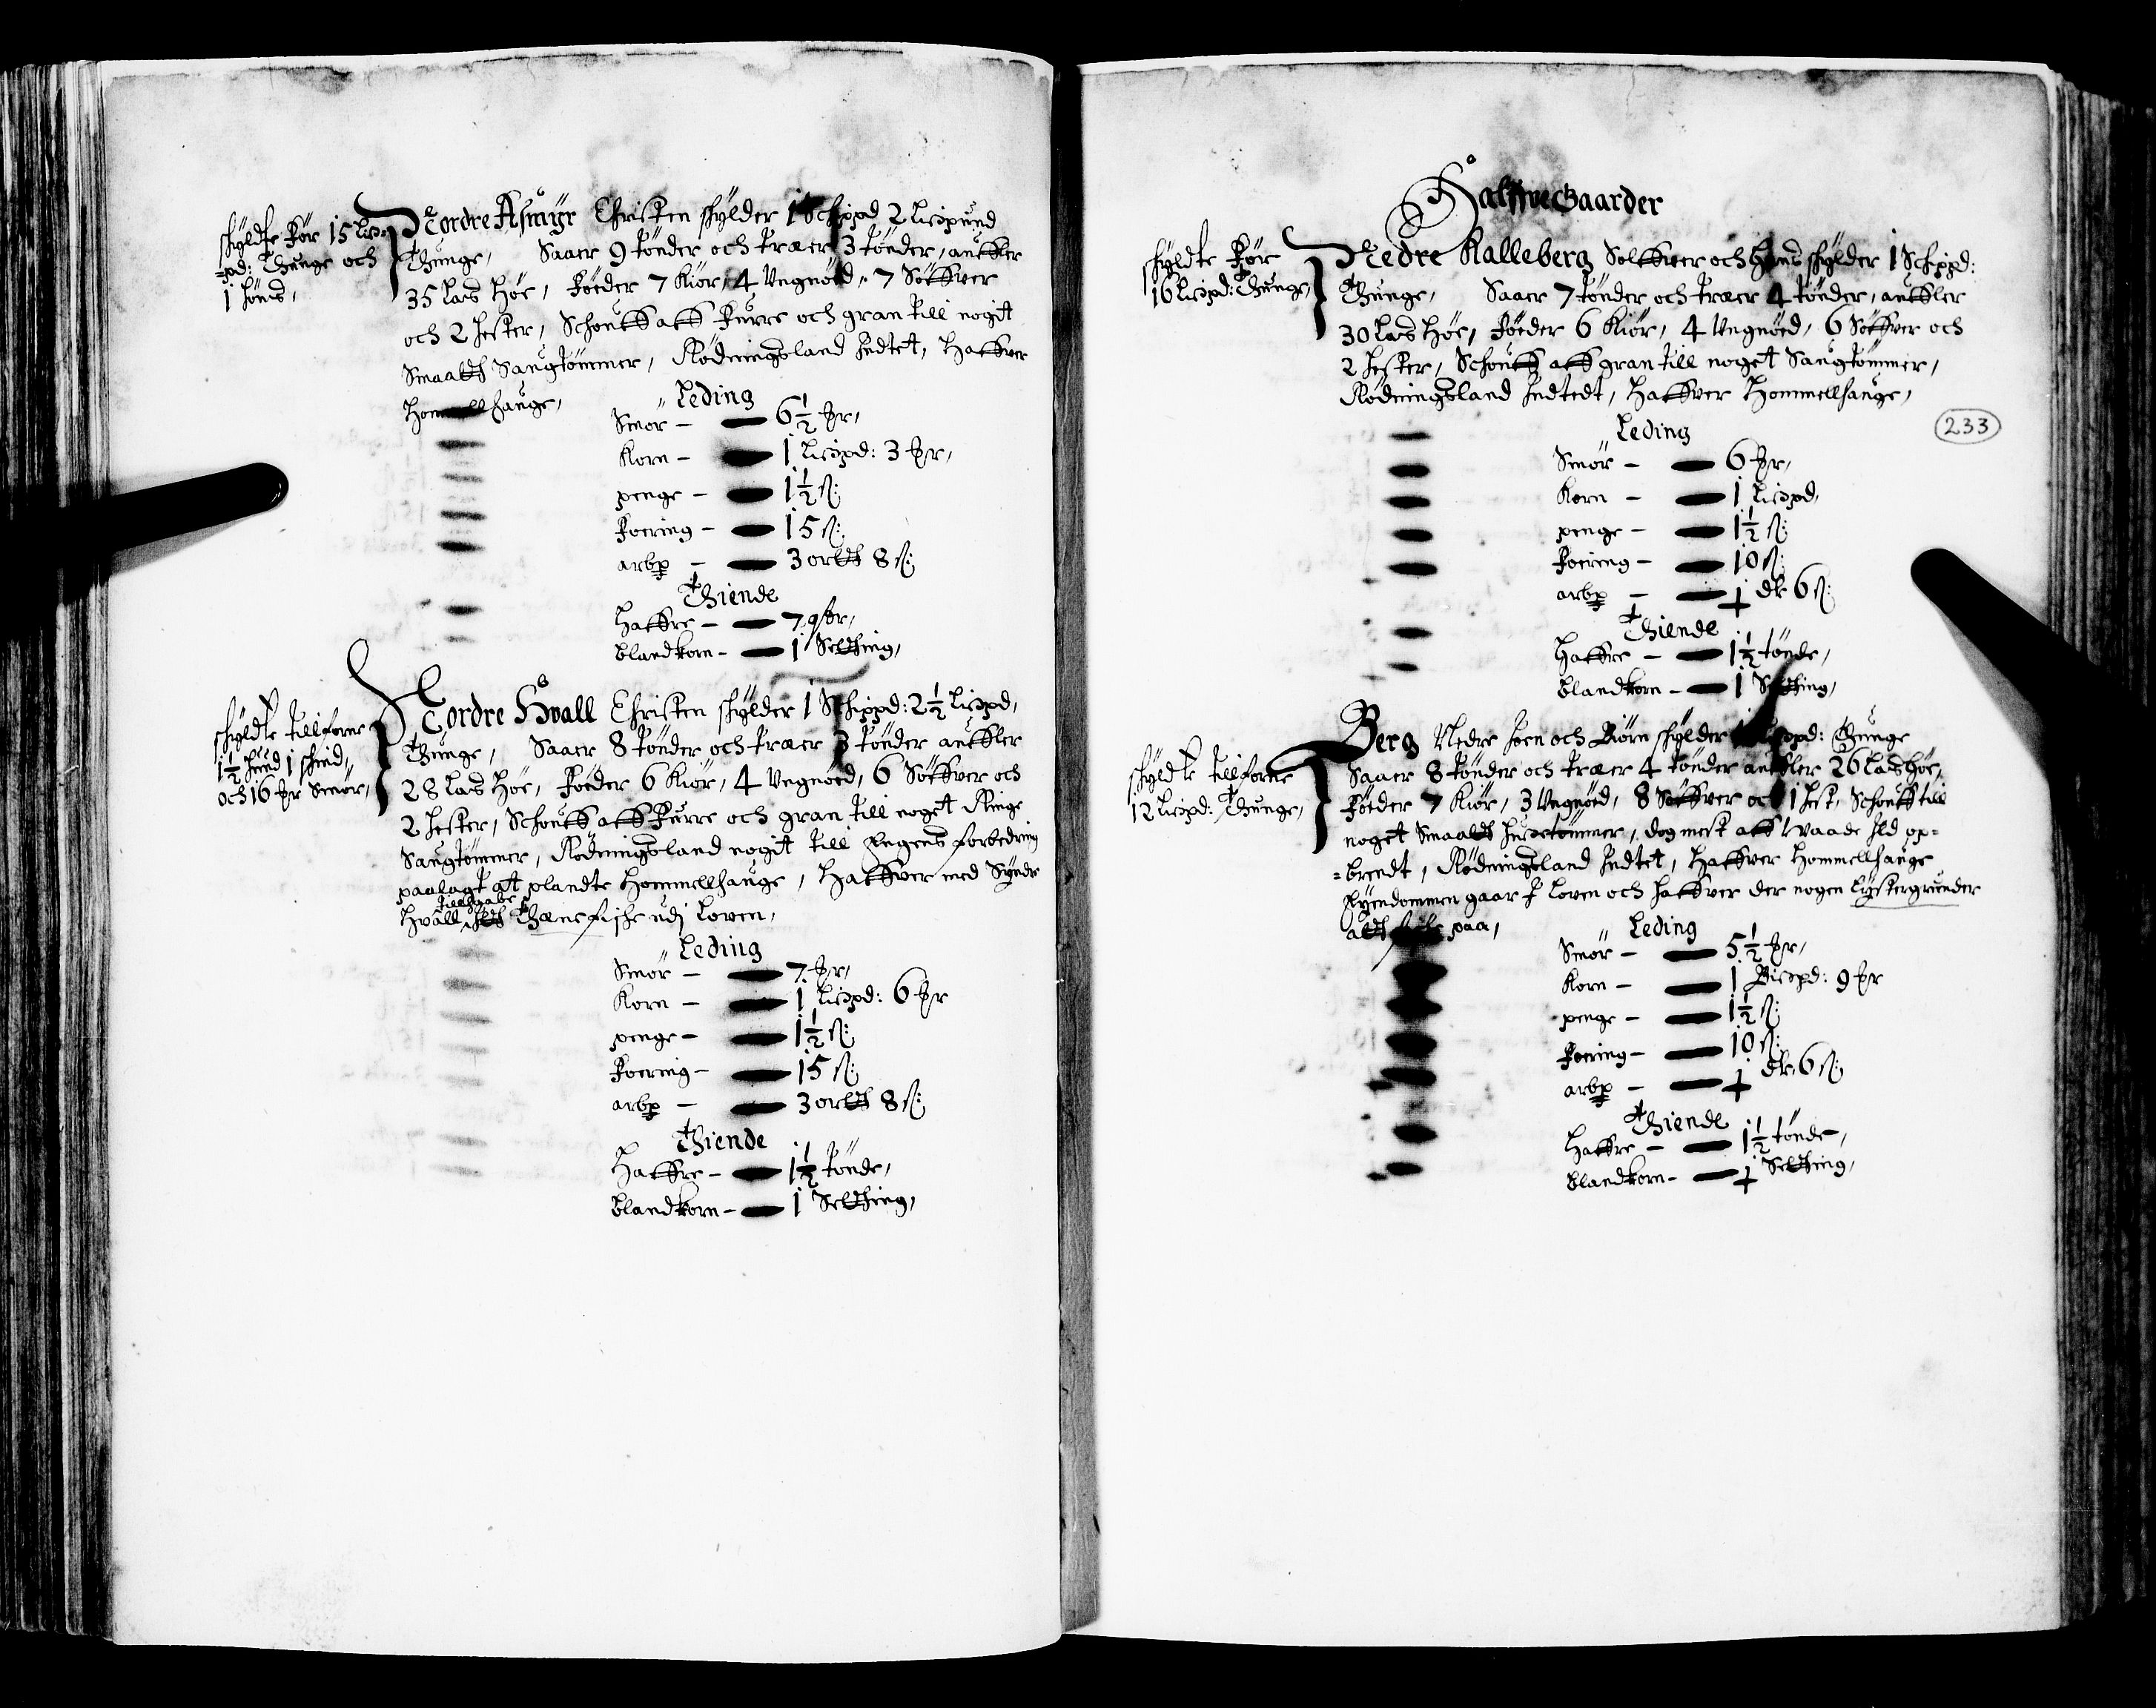 skyldte før 15 Lis=
=pd: Thunge och
1 Hønß,
Nordre Asmÿr Christen skÿlder 1 Schippd 2 Lispund
Thunge, Saaer 9 tønder och træer 3 tønder, auffler
35 Lass Høe, Føeder 7 Kiør, 4 Ungnød, 7 Søffver
och 2 Hester, Schouff aff Furre och gran till nogit
Smaalth Saugtømmer, Rødningsland Indtet, Haffver
Hommellhauge,
Leding
Smør – 6½ ℔r,
Korn – 1 Lispd: 3 ℔r,
penge – 1½ ß:
Foering – 15 ß:
arbp – 3 orth 8 ß:
Thiende
Haffre – 7 qtr,
blandkorn – 1 Selthing,
skÿldte tillforne
1½ Hund 1 skind,
och 16 ℔r Smør,
Nordre Hvall Christen skÿlder 1 Schippd: 2½ Lispd,
Thunge, Saaer 8 tønder och træer 3 tønder auffler
28 Lass Høe, Føeder 6 Kiør, 4 Ungnød, 6 Søffver och
2 Hester, Schouff aff Furre och gran till noget Ringe
Saugtømmer, Rødningsland nogit till Engens forbedring
paalagt att plandte Hommellhauge, Haffver med Syndre
Hvall tillhgabe Thæne fische udj Loven,
Leding
Smør – 7 ℔r,
Korn – 1 Lispd: 6 ℔r
penge – 1½ ß:
Foering – 15 ß:
arbp – 3 orth 8 ß:
Thiende
Haffre – 1½ tønde,
blandkorn – 1 Selthing,
Halffve Gaarder
skÿldte før
16 Lispd: Thunge,
Nedre Kalleberg Solffuer och Hans skÿlder 1 Schippd:
Thunge, Saaer 7 tønder och træer 4 tønder, auffler
30 Lass Høe, Føeder 6 Kiør, 4 Ungnød, 6 Søffver och
2 Hester, Schouff aff gran till noget Saugtømmer,
Rødningsland Indtedt, Haffver Hommellhauge,
233
Leding
Smør – 6 ℔r,
Korn – 1 Lispd,
penge – 1½ ß:
Foering – 10 ß:
arbp – ½ dlr 6 ß:
Thiende
Haffre – 1½ tønde,
blandkorn – 1 Selthing,
skÿldte tillforne
12 Lispd: Thunge,
Berg Nedre Joen och Biørn skÿlder Lispd: Thunge
Saaer 8 tønder och træer 4 tønder auffler 26 Lass Høe,
Føeder 7 Kiør, 3 Ungnød, 8 Søffver och 1 Hest, Schouff till
noget Smaalth Hussetømmer, dog mest aff Waade Ild op=
=brendt, Rødningsland Indtet, Haffver Hommellhauge
Eyendommen gaar J Loven och Haffver der nogen Lÿstergrunder
alth fiske paa,
Leding
Smør – 5½ ℔r,
Korn – 1 Bispd: 9 ℔r
penge – 1½ ß:
Foering – 10 ß:
arbp – ½ dlr 6 ß:
Thiende
Haffre – 1½ tønde,
blandkorn – ½ Selthing,